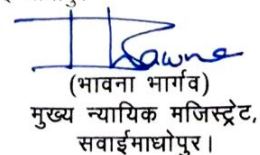 (भावना भार्गव)
मुख्य न्यायिक मजिस्ट्रेट,
सवाईमाधोपुर।